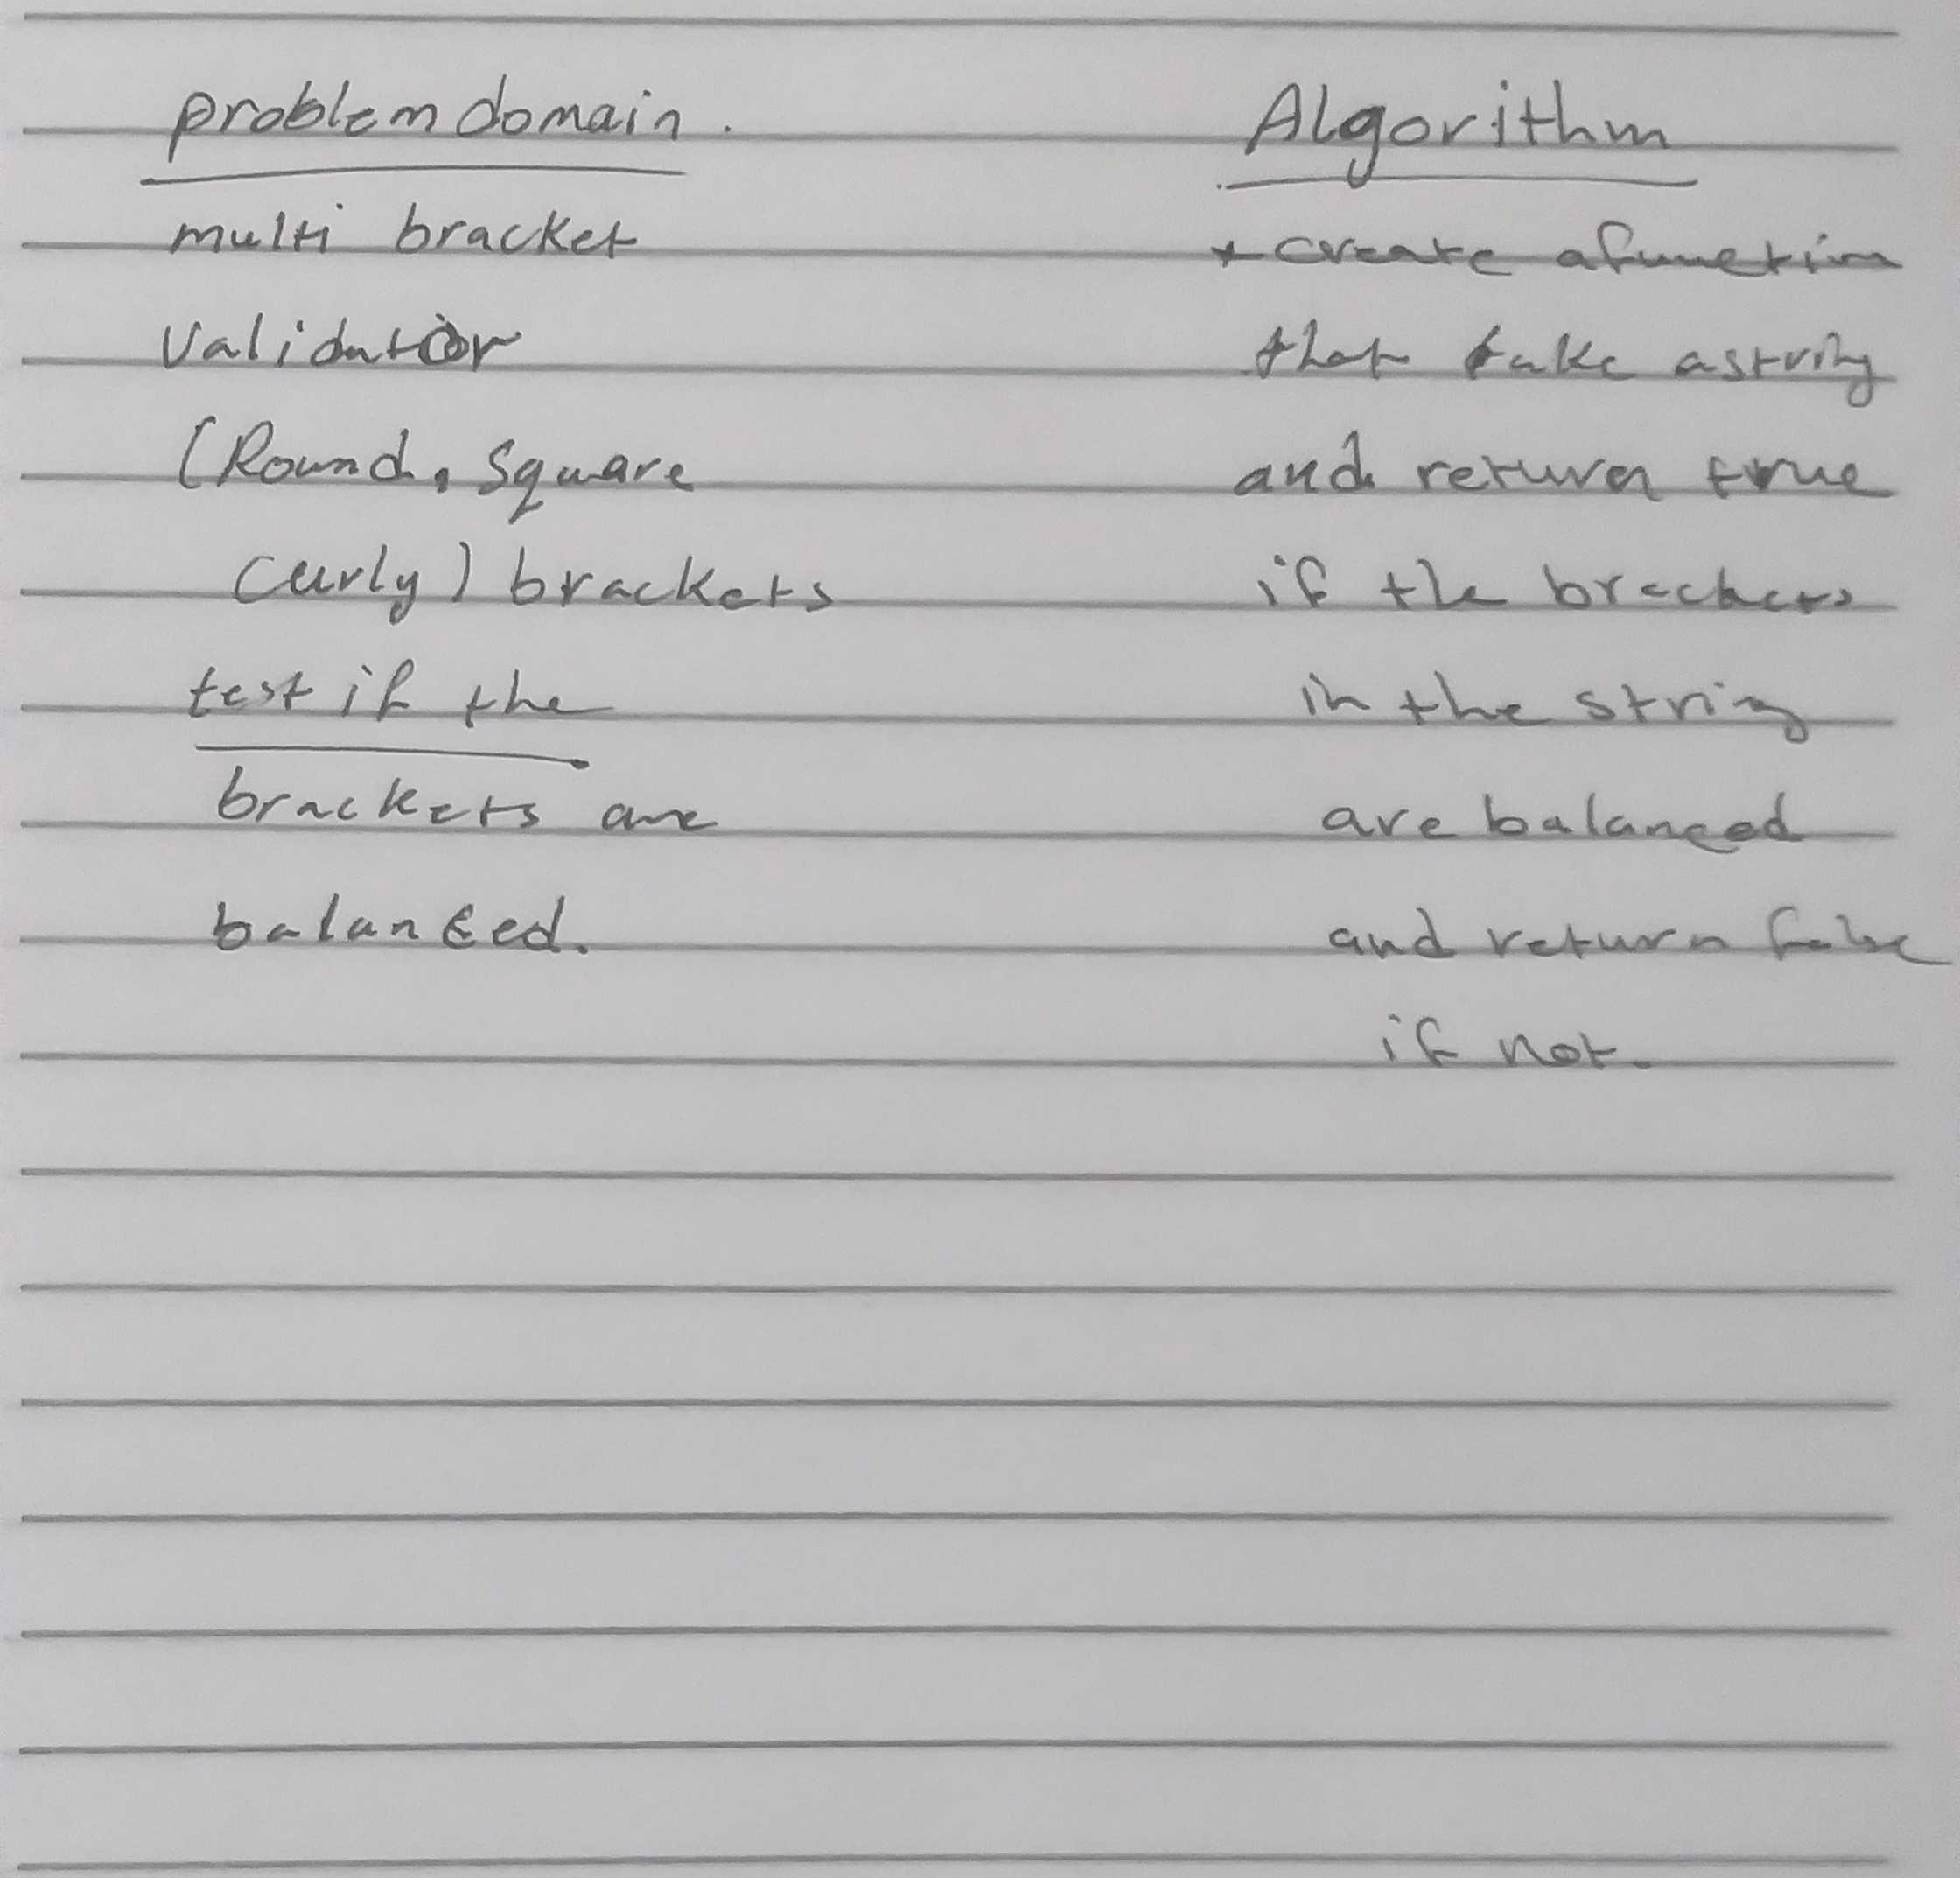 problem domain.
multi bracket
Validator
(Round, Square
Curly) brackets
test if the
brackets are
balanced.
Algorithm
* create a function
that take a string
and return true
if the brackets
in the string
are balanced
and return false
if not.